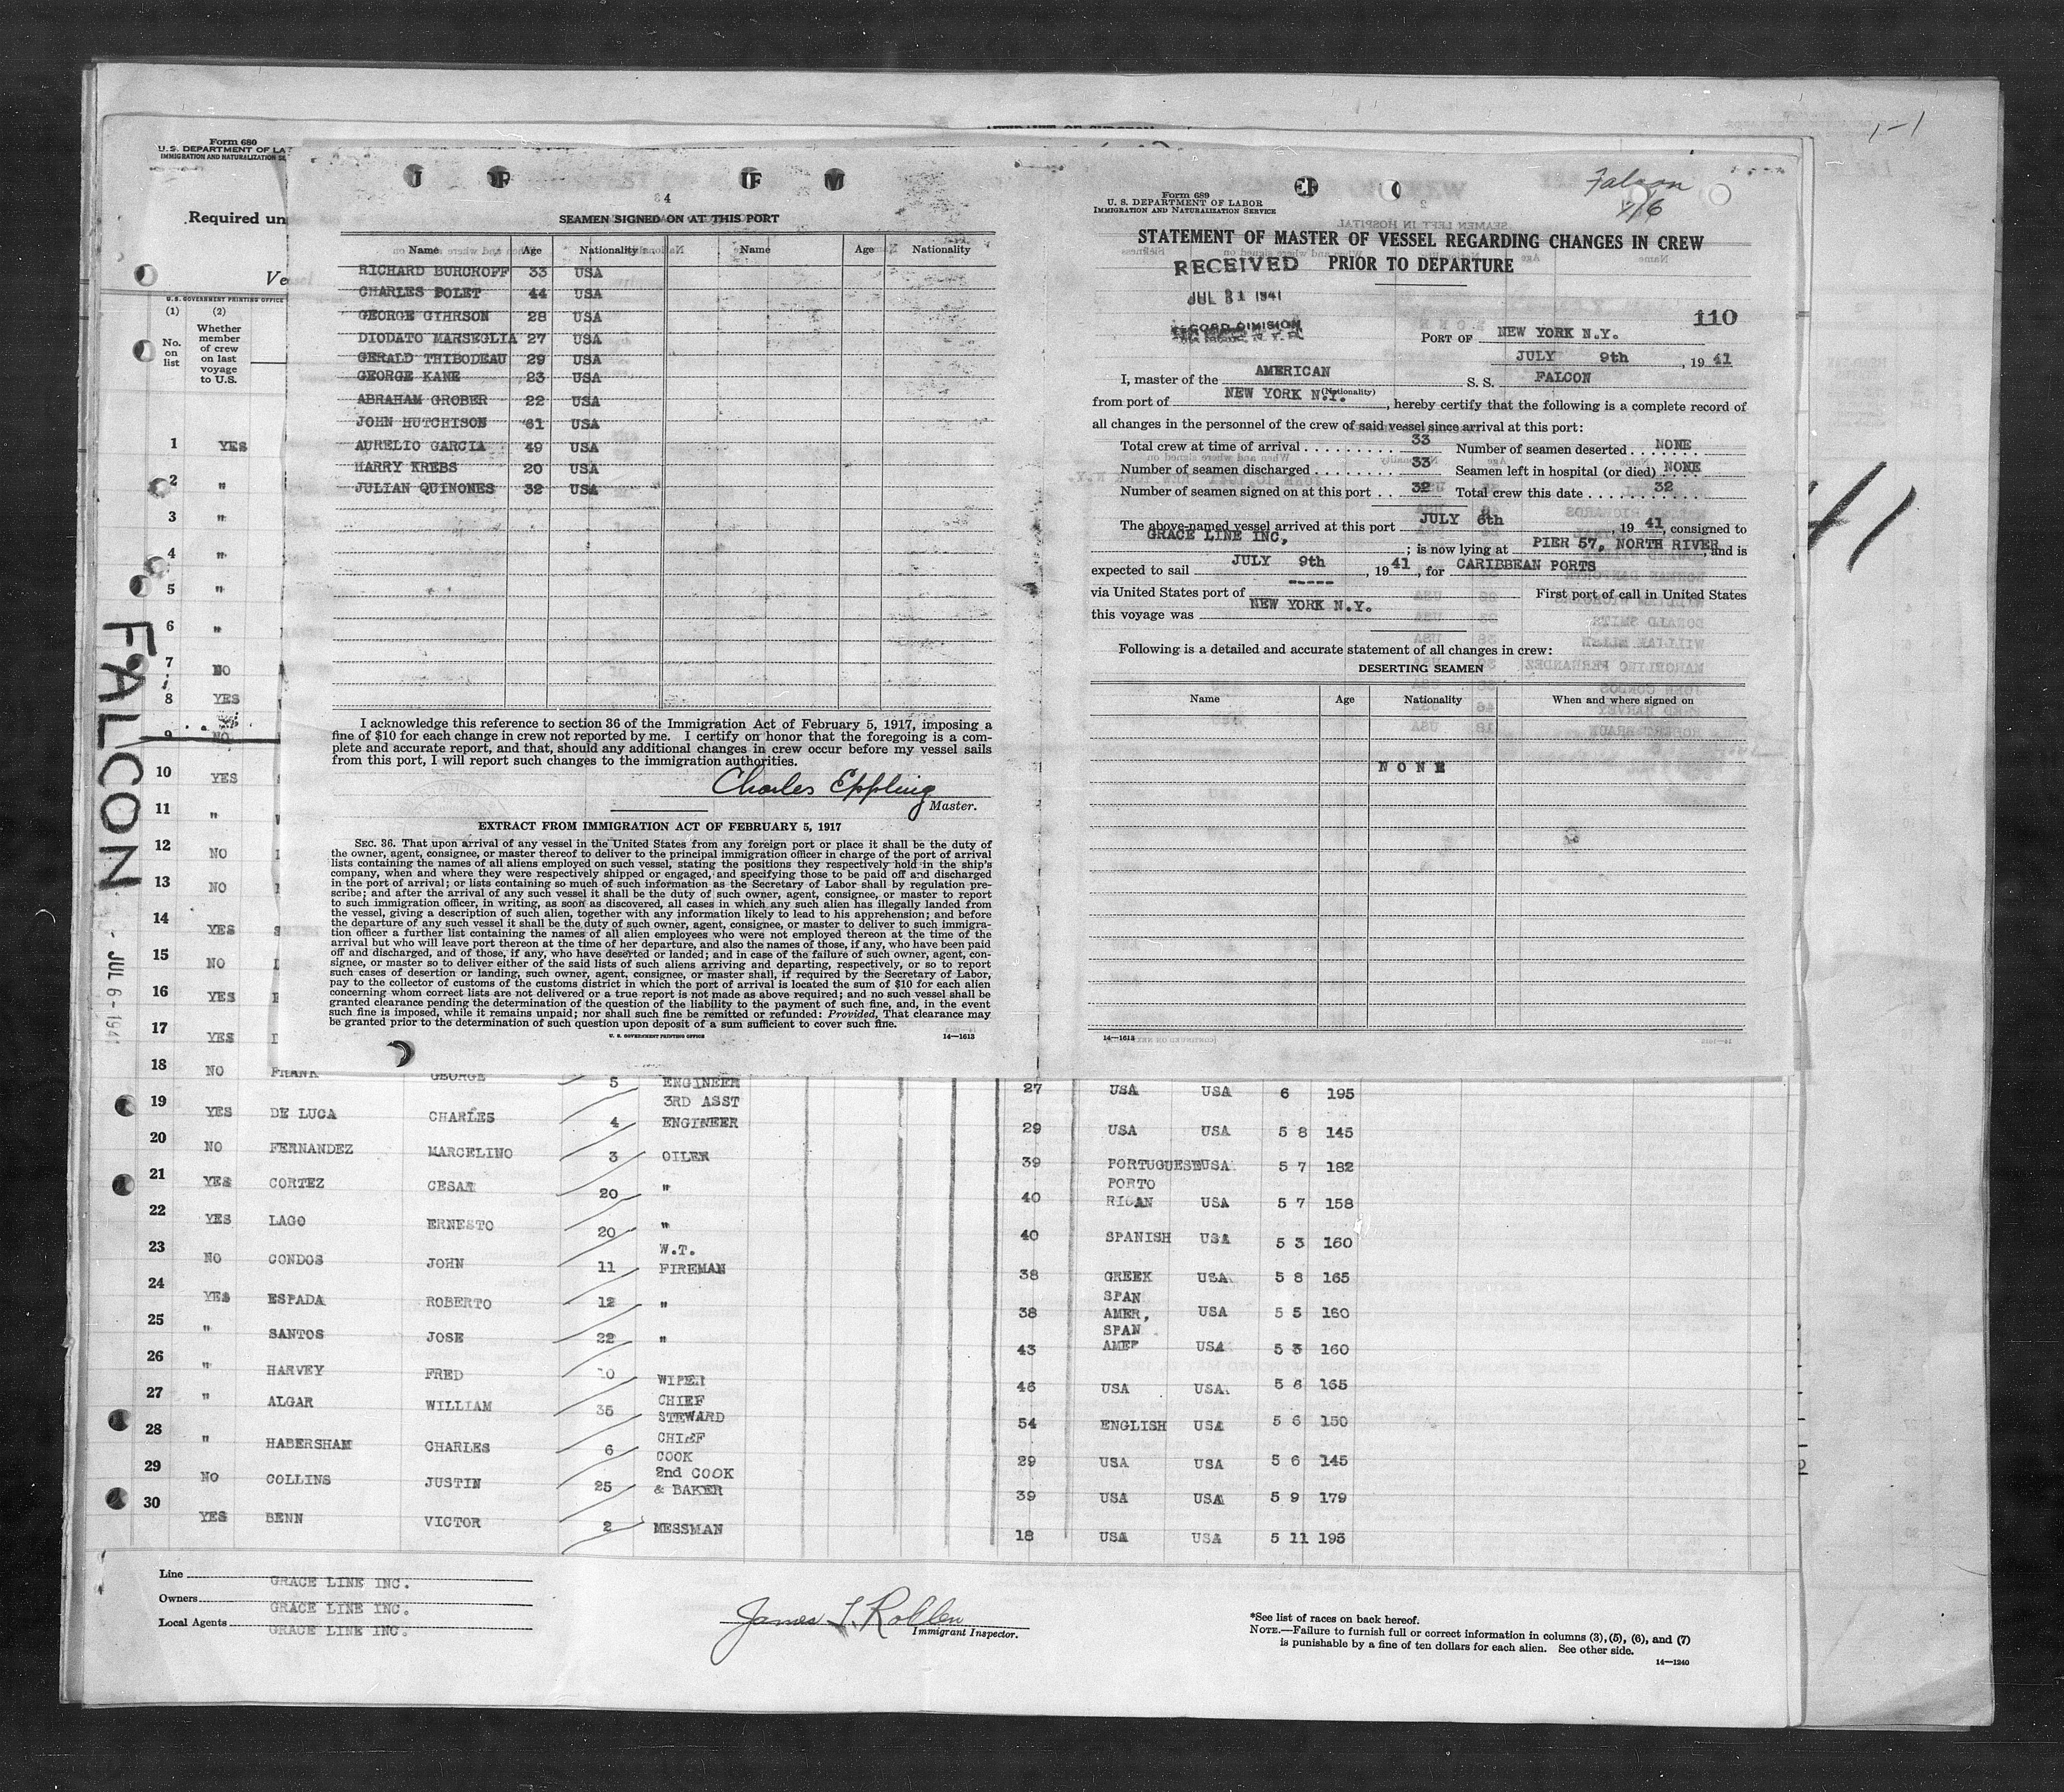 Form 680
U. S. DEPARTMENT OF LA
IMMIGRATION AND NATURALIZATION SE
Required un
Ve
U. S. GOVERNMENT PRINTING OFFICE
(1) (2)
No. on list
Whether member of crew on last voyage to U.S.
1 YES
2 "
3 "
4 "
5 "
6 "
7 NO
8 YES
9 NO
10 YES
11 "
12 NO
13 NO
14 YES
15 NO
16 YES
17 YES
FALCON
JUL 6-1941
4
SEAMEN SIGNED ON AT THIS PORT
Name Age Nationality Name Age Nationality
RICHARD BURCROFF 33 USA
CHARLES POLET 44 USA
GEORGE GIHRSON 28 USA
DIODATO MARSEGLIA 27 USA
GERALD THIBODEAU 29 USA
GEORGE KANE 23 USA
ABRAHAM GROBER 22 USA
JOHN HUTCHISON 61 USA
AURELIO GARCIA 49 USA
HARRY KREBS 20 USA
JULIAN QUINONES 32 USA
I acknowledge this reference to section 36 of the Immigration Act of February 5, 1917, imposing a
fine of $10 for each change in crew not reported by me. I certify on honor that the foregoing is a com-
plete and accurate report, and that, should any additional changes in crew occur before my vessel sails
from this port, I will report such changes to the immigration authorities.
Charles Eppling
Master.
EXTRACT FROM IMMIGRATION ACT OF FEBRUARY 5, 1917
SEC. 36. That upon arrival of any vessel in the United States from any foreign port or place it shall be the duty of
the owner, agent, consignee, or master thereof to deliver to the principal immigration officer in charge of the port of arrival
lists containing the names of all aliens employed on such vessel, stating the positions they respectively hold in the ship's
company, when and where they were respectively shipped or engaged, and specifying those to be paid off and discharged
in the port of arrival; or lists containing so much of such information as the Secretary of Labor shall by regulation pre-
scribe; and after the arrival of any such vessel it shall be the duty of such owner, agent, consignee, or master to report
to such immigration officer, in writing, as soon as discovered, all cases in which any such alien has illegally landed from
the vessel, giving a description of such alien, together with any information likely to lead to his apprehension; and before
the departure of any such vessel it shall be the duty of such owner, agent, consignee, or master to deliver to such immigra-
tion officer a further list containing the names of all alien employees who were not employed thereon at the time of the
arrival but who will leave port thereon at the time of her departure, and also the names of those, if any, who have been paid
off and discharged, and of those, if any, who have deserted or landed; and in case of the failure of such owner, agent, con-
signee, or master so to deliver either of the said lists of such aliens arriving and departing, respectively, or so to report
such cases of desertion or landing, such owner, agent, consignee, or master shall, if required by the Secretary of Labor,
pay to the collector of customs of the customs district in which the port of arrival is located the sum of $10 for each alien
concerning whom correct lists are not delivered or a true report is not made as above required; and no such vessel shall be
granted clearance pending the determination of the question of the liability to the payment of such fine, and, in the event
such fine is imposed, while it remains unpaid; nor shall such fine be remitted or refunded: Provided, That clearance may
be granted prior to the determination of such question upon deposit of a sum sufficient to cover such fine.
U. S. GOVERNMENT PRINTING OFFICE 14—1613
Falcon
7/6
Form 689
U. S. DEPARTMENT OF LABOR
IMMIGRATION AND NATURALIZATION SERVICE
STATEMENT OF MASTER OF VESSEL REGARDING CHANGES IN CREW
PRIOR TO DEPARTURE
RECEIVED
JUL 31 1941
RECORD DIVISION
110
PORT OF NEW YORK N.Y.
JULY 9th, 1941
I, master of the AMERICAN S. S. FALCON
(Nationality)
from port of NEW YORK N.Y., hereby certify that the following is a complete record of
all changes in the personnel of the crew of said vessel since arrival at this port:
Total crew at time of arrival 33 Number of seamen deserted NONE
Number of seamen discharged 33 Seamen left in hospital (or died) NONE
Number of seamen signed on at this port 32 Total crew this date 32
The above-named vessel arrived at this port JULY 6th, 1941, consigned to
GRACE LINE INC, ; is now lying at PIER 57, NORTH RIVER, and is
expected to sail JULY 9th, 1941, for CARIBBEAN PORTS
via United States port of ----- First port of call in United States
this voyage was NEW YORK N.Y.
Following is a detailed and accurate statement of all changes in crew:
DESERTING SEAMEN
Name Age Nationality When and where signed on
NONE
14—1613
1-1
41
18 NO FRANK GEORGE 5 ENGINEER 27 USA USA 6 195
19 YES DE LUCA CHARLES 4 3RD ASST ENGINEER 29 USA USA 5 8 145
20 NO FERNANDEZ MARCELINO 3 OILER 39 PORTUGUESE USA 5 7 182
21 YES CORTEZ CESAR 20 " 40 PORTO RICAN USA 5 7 158
22 YES LAGO ERNESTO 20 " 40 SPANISH USA 5 3 160
23 NO GONDOS JOHN 11 W.T. FIREMAN 38 GREEK USA 5 8 165
24 YES ESPADA ROBERTO 12 " 38 SPAN AMER, USA 5 5 160
25 " SANTOS JOSE 22 " 43 SPAN AMER USA 5 3 160
26 " HARVEY FRED 10 WIPER 46 USA USA 5 6 165
27 " ALGAR WILLIAM 35 CHIEF STEWARD 54 ENGLISH USA 5 6 150
28 " HABERSHAM CHARLES 6 CHIEF COOK 29 USA USA 5 6 145
29 NO COLLINS JUSTIN 25 2nd COOK & BAKER 39 USA USA 5 9 179
30 YES BENN VICTOR 2 MESSMAN 18 USA USA 5 11 195
Line GRACE LINE INC.
Owners GRACE LINE INC.
Local Agents GRACE LINE INC.
Immigrant Inspector.
*See list of races on back hereof.
NOTE.—Failure to furnish full or correct information in columns (3), (5), (6), and (7)
is punishable by a fine of ten dollars for each alien. See other side.
14—1240